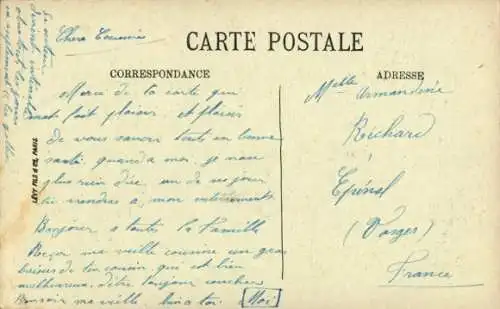 Chère Cousine
CARTE POSTALE
CORRESPONDANCE
ADRESSE
Merci de ta carte qui
m'at fait plaisir et plaisir
de vous savoir tout en bonne
santé quand a moi je n'ans
plus rien d'ée un de ses jour
tu viendras a mon enterrements
Bonjour a toute la Famille
Reçoi ma vieille cousine un gros
baisers de ton cousin qui est bien
malheureux d'être toujour coucher
Bonsoir ma vieille a toi Moi
Melle Armandine
Richard
Epinal
(Vosges)
France
LÉVY FILS & CIE, PARIS